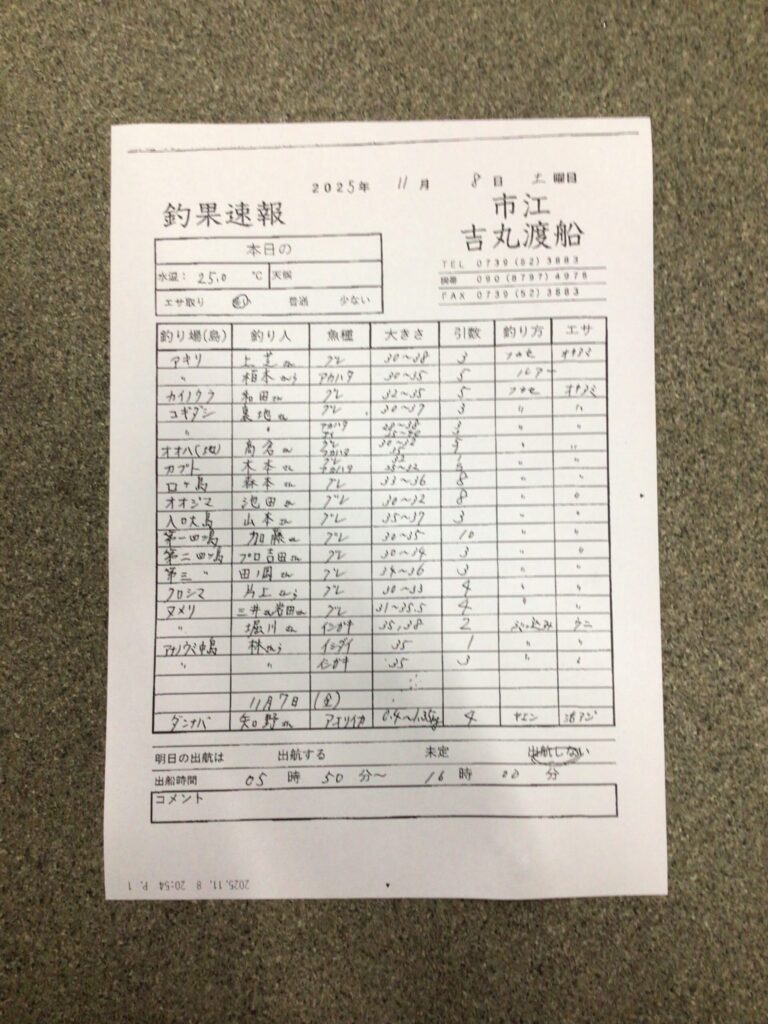 2025年 11月 8日 土曜日
釣果速報
市江
吉丸渡船
TEL 0739 (52) 3883
携帯 090 (8797) 4978
FAX 0739 (52) 3883
本日の
水温： 25.0 ℃ 天候
エサ取り 多い 普通 少ない
釣り場(島) 釣り人 魚種 大きさ 引数 釣り方 エサ
アキリ 上芝さん グレ 30〜38 3 フカセ オキアミ
〃 柏木さん アカハタ 30〜35 5 ルアー
カイノウラ 和田さん グレ 32〜35 5 フカセ オキアミ
コギダシ 裏地さん グレ 30〜37 3 〃 〃
〃 〃 アカハタ 3 〃 〃
オオハ(地) さん グレ 30〜32 5 〃 〃
アカハタ 35
カブト 木本さん グレ 32 1 〃 〃
アカハタ
口ヶ島 森本さん グレ 33〜36 8 〃 〃
オオジマ 池田さん グレ 30〜32 8 〃 〃
入口大島 山本さん グレ 35〜37 3 〃 〃
第一四ツ島 加藤さん グレ 30〜35 10 〃 〃
第二四ツ島 プロ吉田さん グレ 30〜34 3 〃 〃
第三 〃 田岡さん グレ 34〜36 3 〃 〃
クロシマ 片上さん グレ 30〜33 4 〃 〃
ヌメリ 三井さん岩田さん グレ 31〜35.5 4 〃 〃
〃 堀川さん イシガキ 35,38 2 ぶっ込み ウニ
アナノウミ中島 林さん イシダイ 35 1 〃 〃
〃 〃 イシガキ 35 3 〃 〃
11月7日 (金)
ダンナバ 知野さん アオリイカ 0.4〜1.35kg 4 ヤエン 活アジ
明日の出航は 出航する 未定 出航しない
出船時間 05 時 50 分〜 16 時 00 分
コメント
2025.11. 8 20:54 P. 1